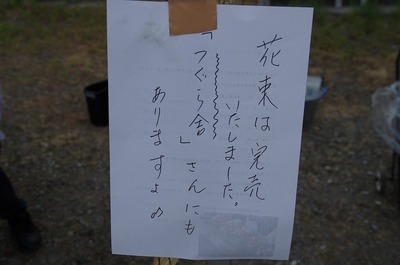 花束は完売
いたしました。
「つぐら舎」さんにも
ありますよ♪